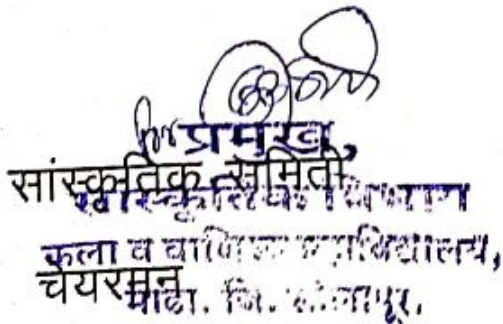 for प्रमुख,
सांस्कृतिक समिती
सांस्कृतिक विभाग
कला व वाणिज्य महाविद्यालय,
चेयरमन
माढा. जि. सोलापूर.